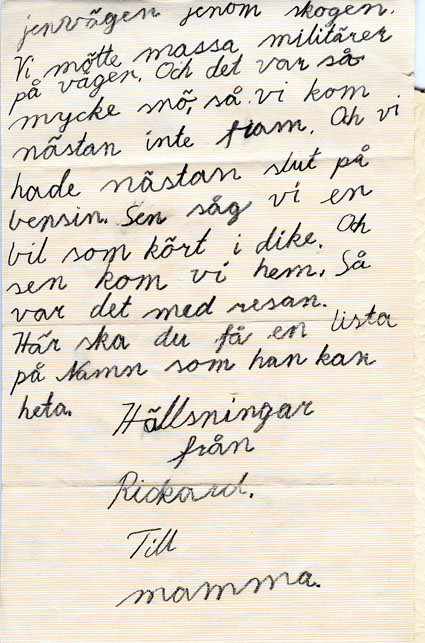 jenvägen jenom skogen.
Vi mötte massa militärer
på vägen. Och det var så
mycke snö, så vi kom
nästan inte fram. Och vi
hade nästan slut på
bensin. Sen såg vi en
bil som kört i dike. Och
sen kom vi hem. Så
var det med resan.
Här ska du få en lista
på Namn som han kan
heta.
Hällsningar
från
Rickard.
Till
mamma.